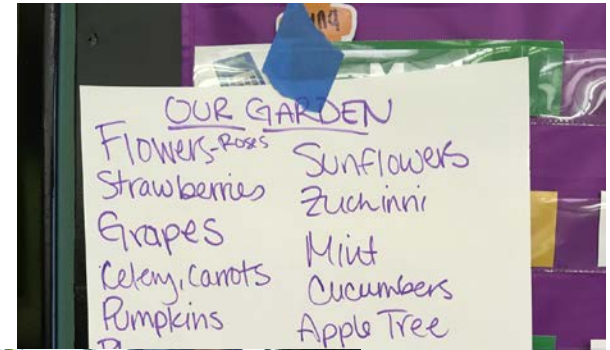 OUR GARDEN
Flowers-Roses
Strawberries
Grapes
Celery, Carrots
Pumpkins
Sunflowers
Zuchinni
Mint
Cucumbers
Apple Tree